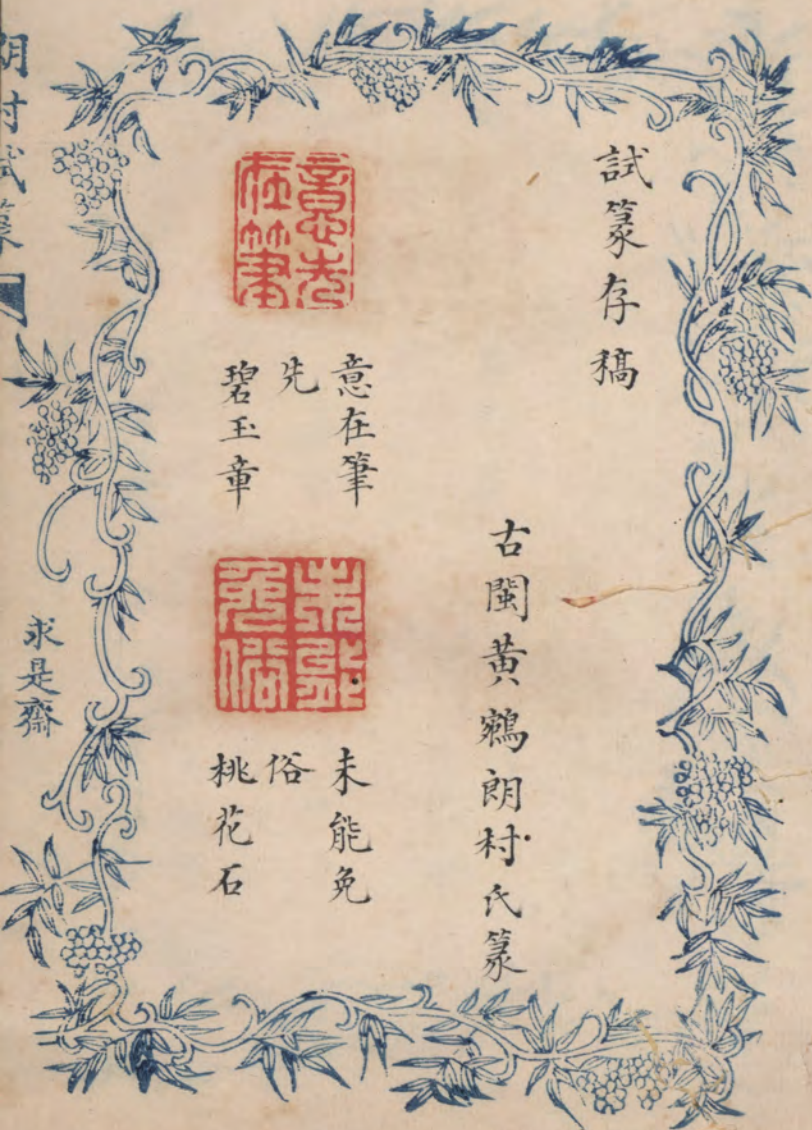 試篆存稿
古閩黃鵷朗村氏篆
意在筆先
意在筆
先
碧玉章
未能免俗
未能免
俗
桃花石
朗村試篆
求是齋